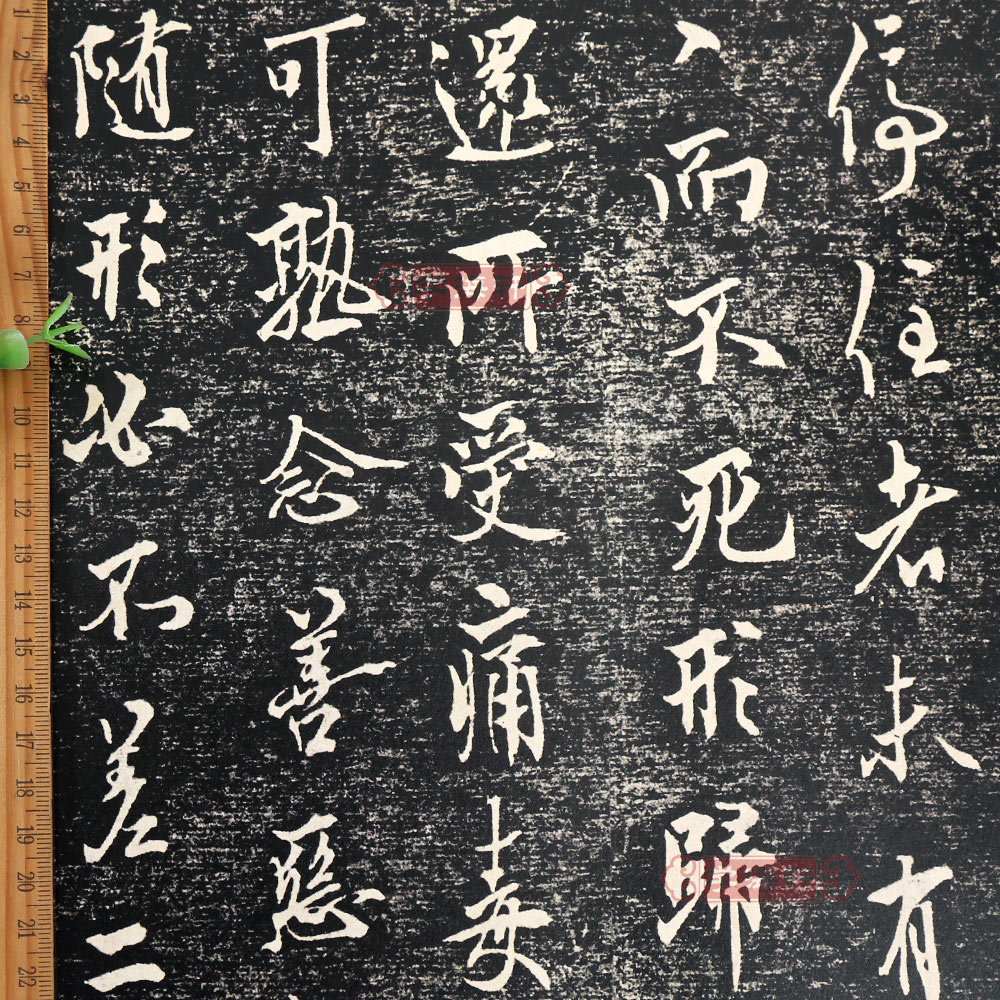 停住者未有
入而不死形歸
還所受痛毒
可熟念善惡
随形必不差二
1 2 3 4 5 6 7 8 10 11 12 13 14 15 16 17 18 19 20 21 22